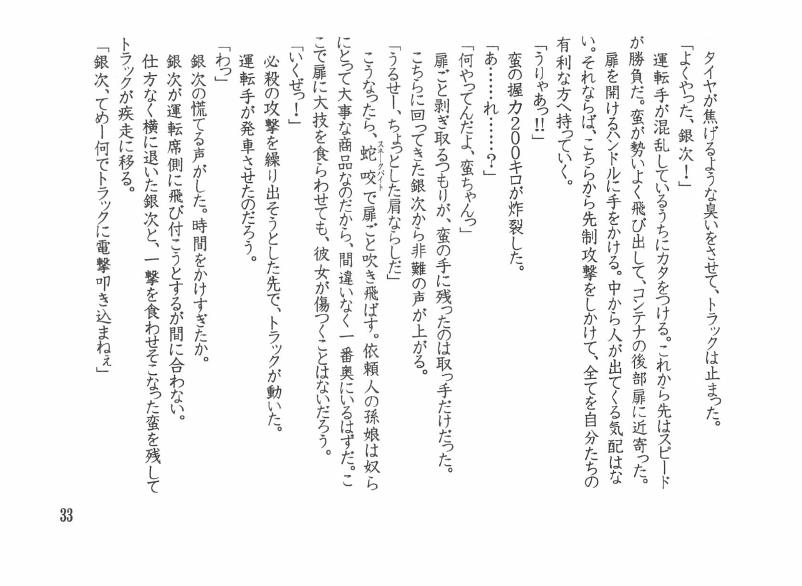 タイヤが焦げるような臭いをさせて、トラックは止まった。
「よくやった、銀次！」
運転手が混乱しているうちにカタをつける。これから先はスピード
が勝負だ。蛮が勢いよく飛び出して、コンテナの後部扉に近寄った。
扉を開けるハンドルに手をかける。中から人が出てくる気配はな
い。それならば、こちらから先制攻撃をしかけて、全てを自分たちの
有利な方へ持っていく。
「うりゃあっ!!」
蛮の握力２００キロが炸裂した。
「あ……れ……？」
「何やってんだよ、蛮ちゃんっ」
扉ごと剥ぎ取るつもりが、蛮の手に残ったのは取っ手だけだった。
こちらに回ってきた銀次から非難の声が上がる。
「うるせー、ちょっとした肩ならしだ」
こうなったら、蛇咬スネークバイトで扉ごと吹き飛ばす。依頼人の孫娘は奴ら
にとって大事な商品なのだから、間違いなく一番奥にいるはずだ。こ
こで扉に大技を食らわせても、彼女が傷つくことはないだろう。
「いくぜっ！」
必殺の攻撃を繰り出そうとした先で、トラックが動いた。
運転手が発車させたのだろう。
「わっ」
銀次の慌てる声がした。時間をかけすぎたか。
銀次が運転席側に飛び付こうとするが間に合わない。
仕方なく横に退いた銀次と、一撃を食わせそこなった蛮を残して
トラックが疾走に移る。
「銀次、てめー何でトラックに電撃叩き込まねぇ」
33